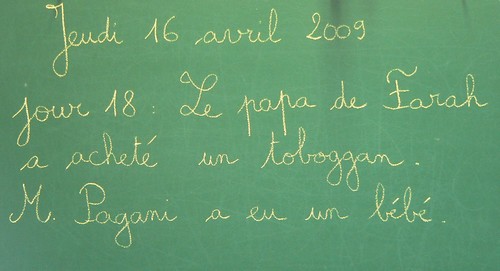 Jeudi 16 avril 2009
jour 18 : Le papa de Farah
a acheté un toboggan.
M. Pagani a eu un bébé.